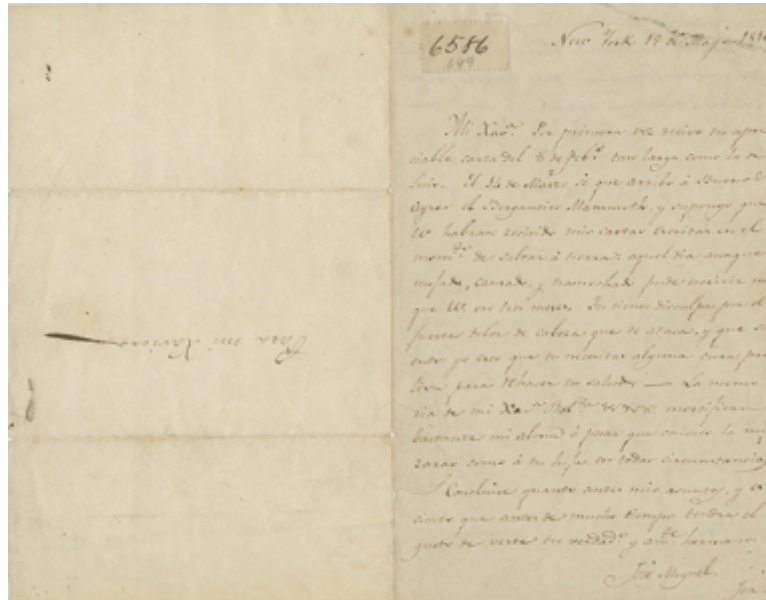 6586
449
New York 19 de Mayo 181
Mi Xavª. Por primera vez recivo tu apre
ciable carta del 8 de febº. tan larga como la de
Luis. El dia de Marzo se que arribo á Buenos
Ayres el Bergantin Mammoth, y supongo que
Vs. habran recivido mis cartas escritas en el
momto. de saltar á tierra: aquel dia aunque
mojado, cansado, y trasnochado pude escrivir
que Vs. en tres meses. Tu tienes disculpa por el
fuerte dolor de cabeza que te ataca, y que si
ento; yo creo que tu necesitas alguna cura
para rehacer tu salud — La memo
ria de mi mortifica
bastante mi alma á pesar que
como á tu hija en todas circunstancias
Concluire quanto antes mis asuntos, y
ciento que antes de mucho tiempo tendra el
gusto de verte tu verdadº. y amte. hermano
José Miguel.
Para mi Xaviera